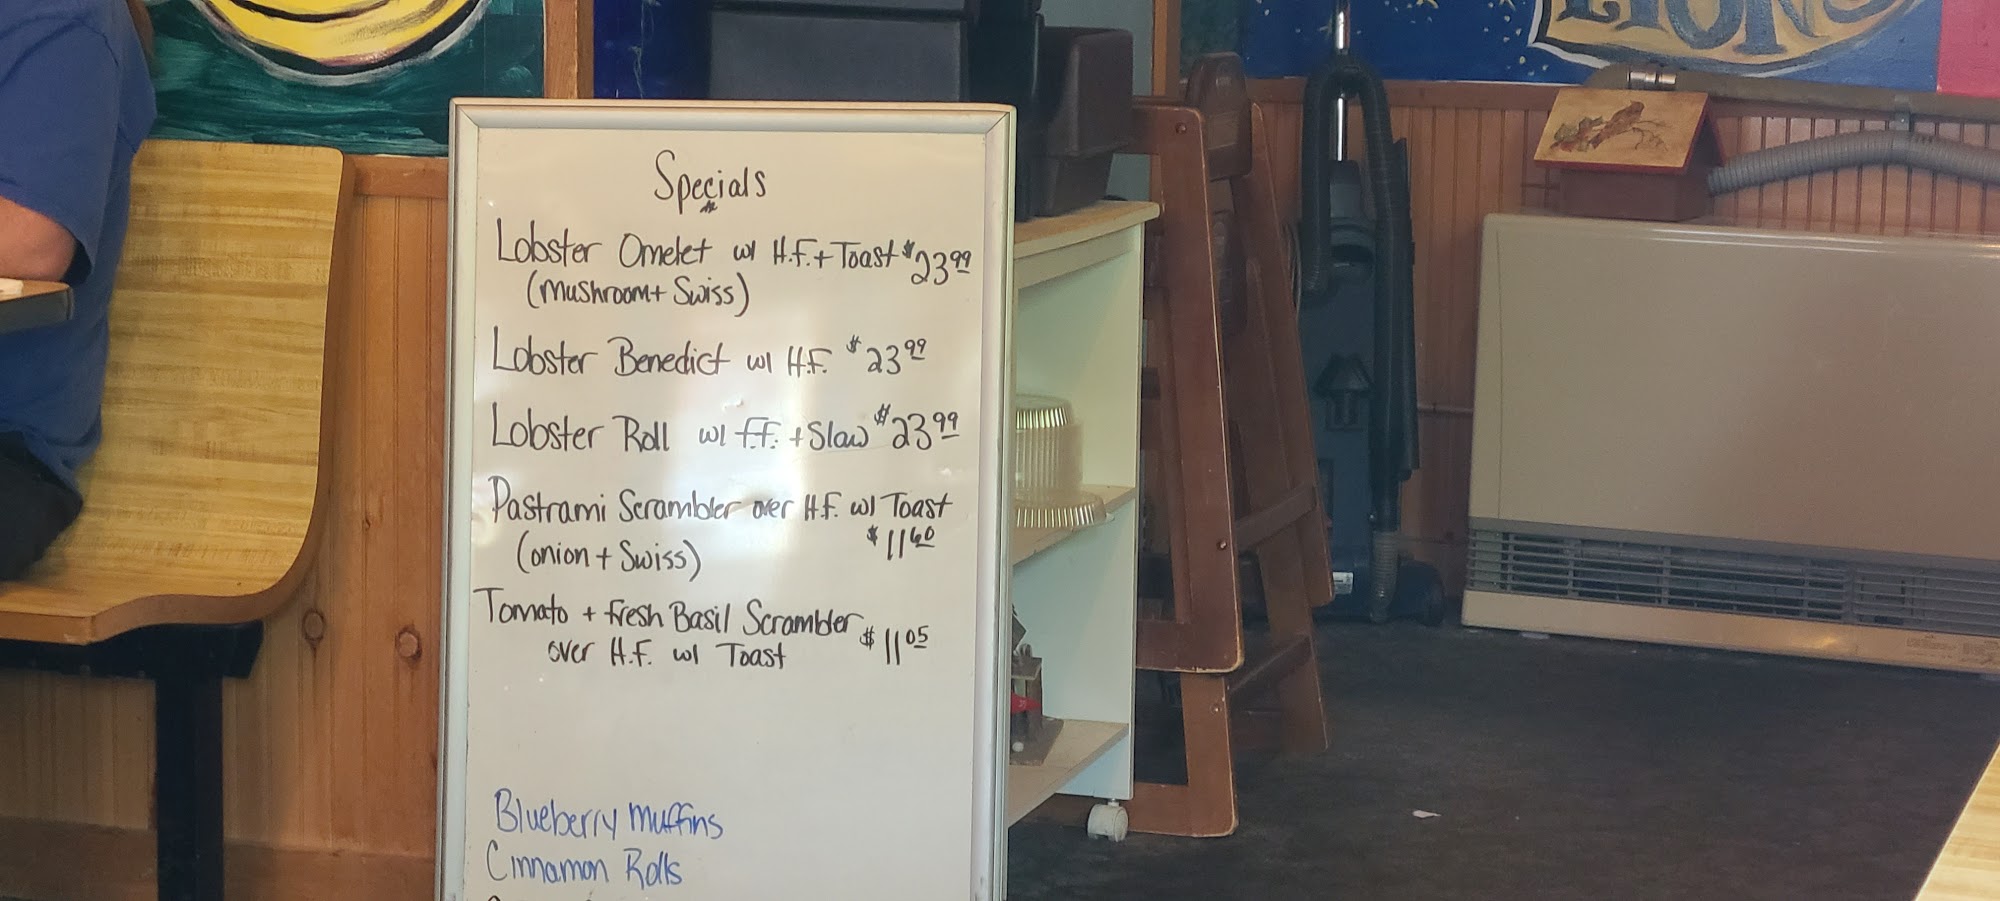 LIONS
Specials
Lobster Omelet w/ H.F. + Toast $23.99
(mushroom + Swiss)
Lobster Benedict w/ H.F. $23.99
Lobster Roll w/ F.F. + Slaw $23.99
Pastrami Scrambler over H.F. w/ Toast
(onion + Swiss) $11.60
Tomato + Fresh Basil Scrambler
over H.F. w/ Toast $11.05
Blueberry Muffins
Cinnamon Rolls